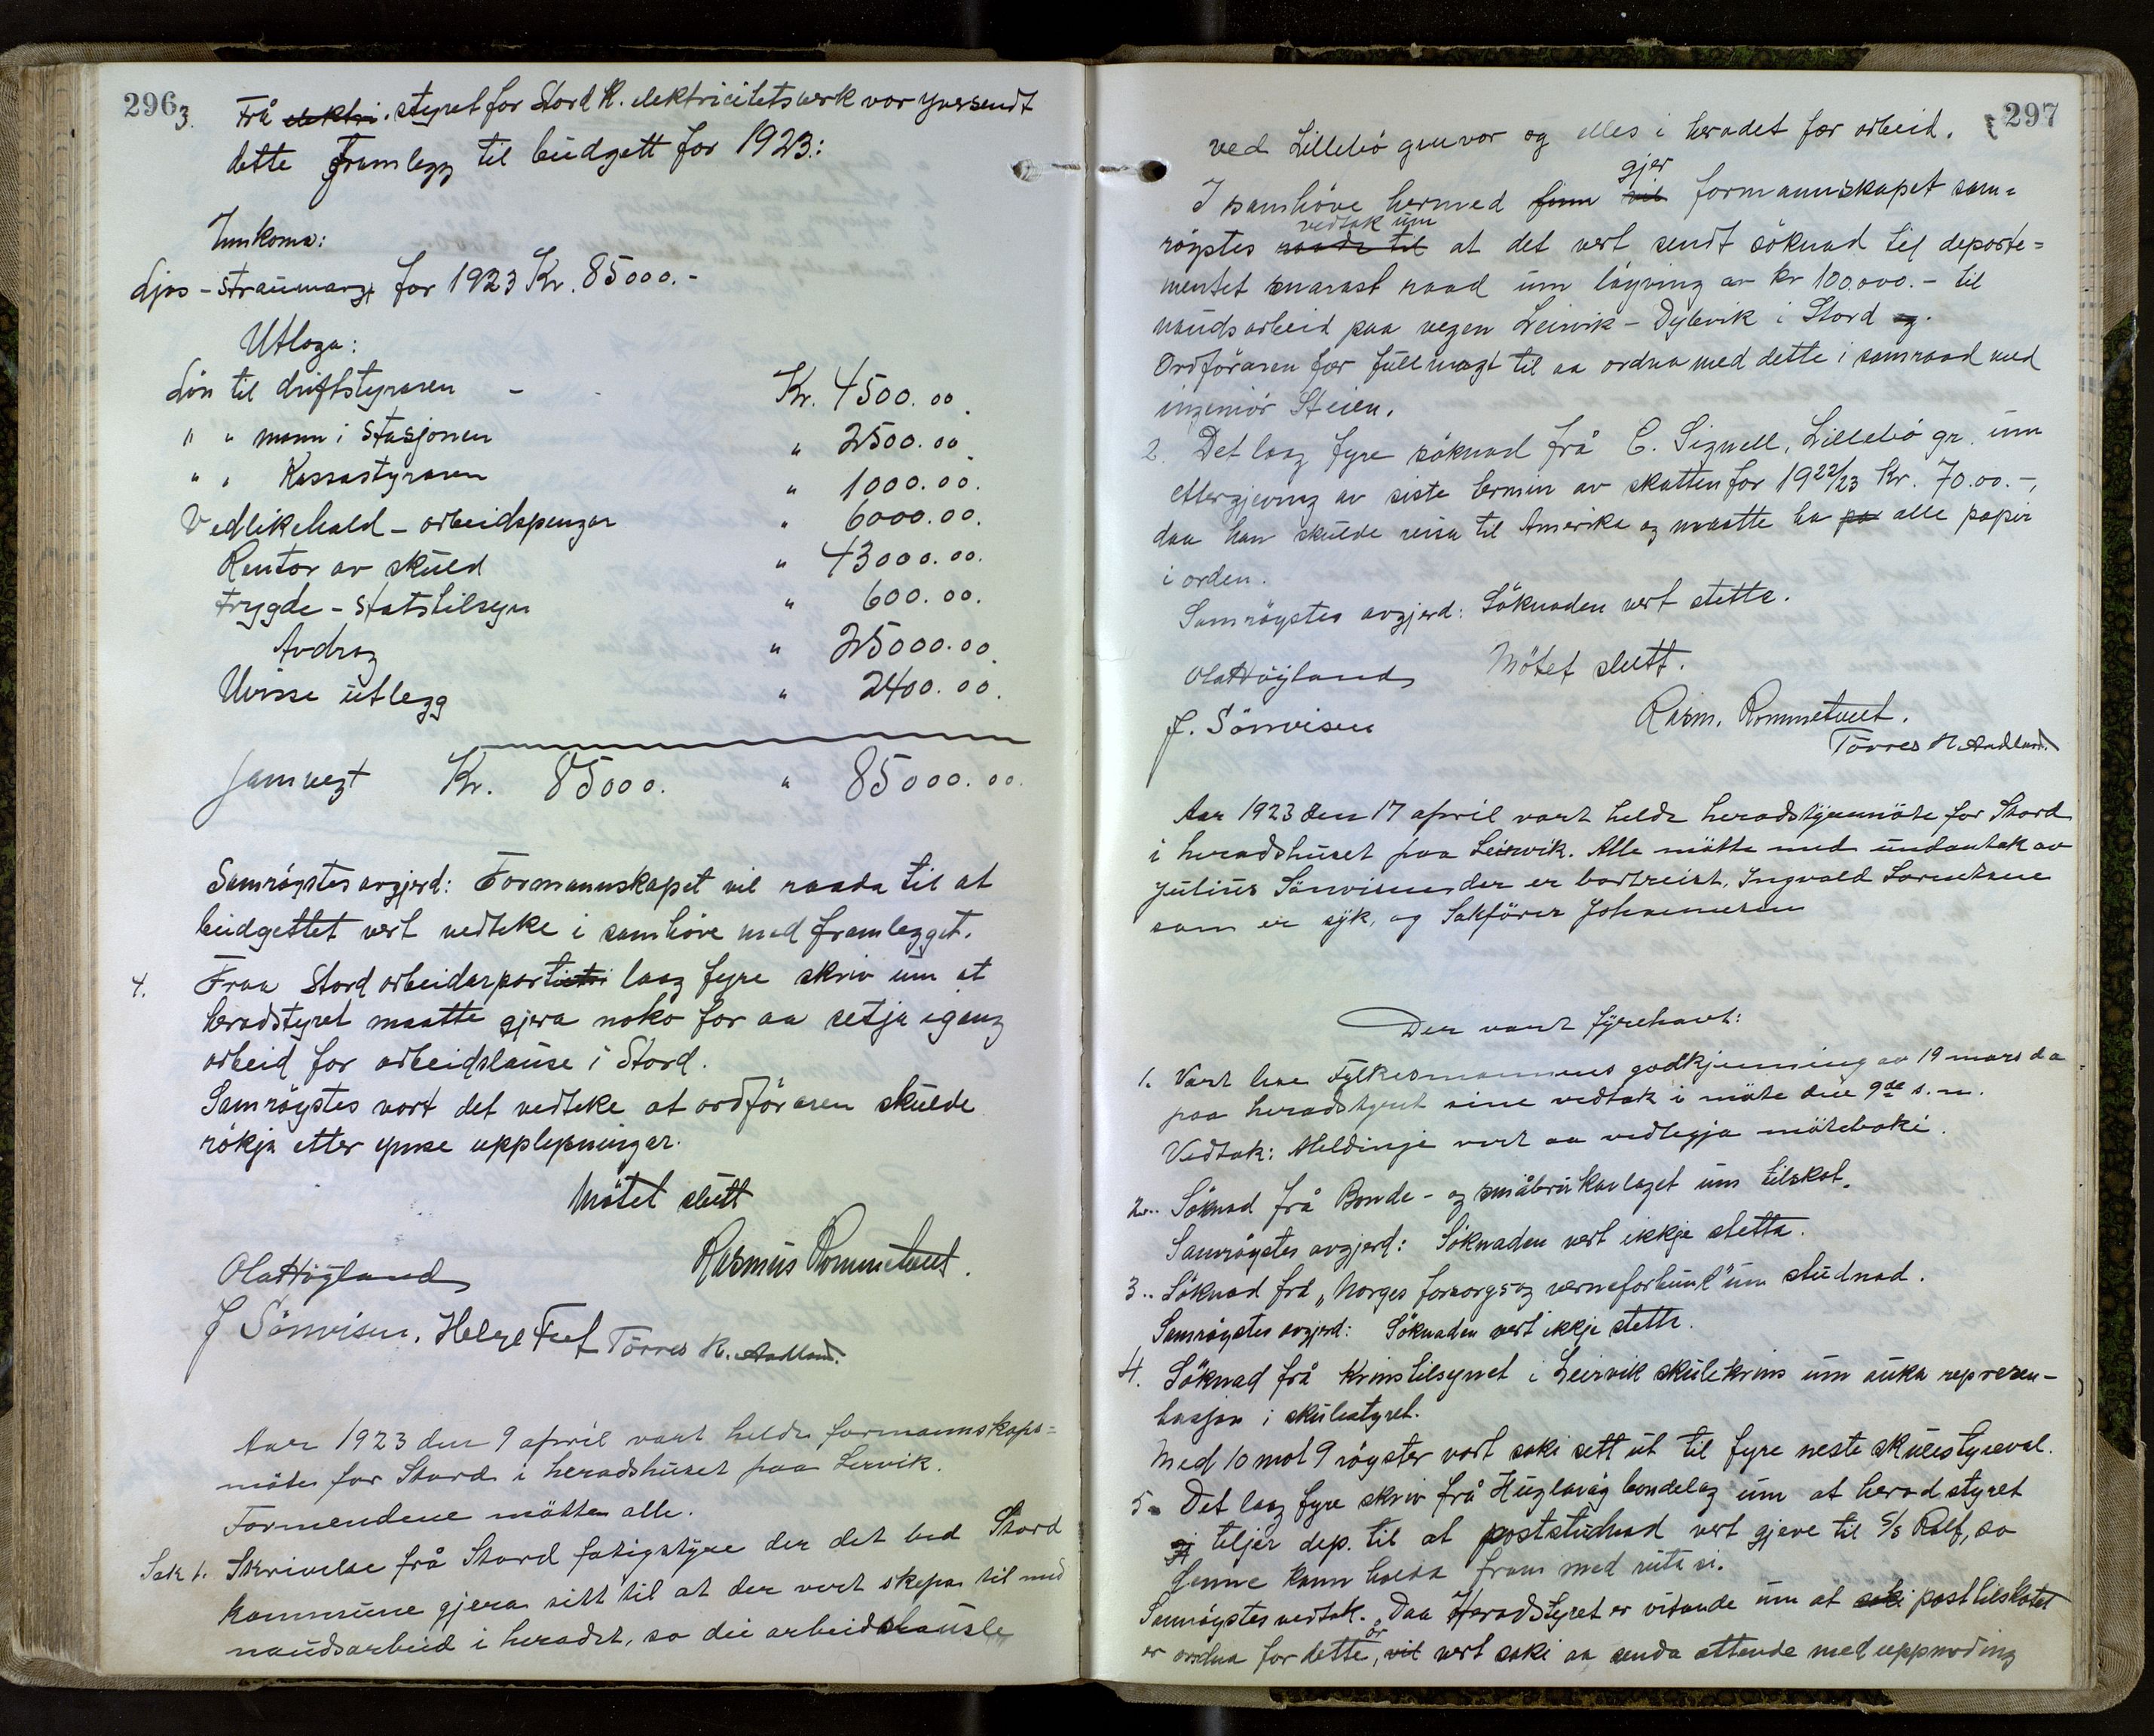 296
3. Frå elektri. styret for Stord K. elektricitetsverk var yversendt
dette framlegg til budgett for 1923:
Innkoma:
Ljos-straumavg. for 1923 Kr. 85000.-
Utloga:
Lön til driftstyraren - Kr. 4500.00.
" " mann i stasjonen " 2500.00.
" " Kassastyraren " 1000.00.
Vedlikehald - arbeidspengar " 6000.00.
Rentor av skuld " 43000.00.
Trygde - statstilsyn " 600.00.
Avdrag " 25000.00.
Uvisse utlegg " 2400.00.
Jamvegt Kr. 85000. " 85000.00.
Samröystes avgjerd: Formannskapet vil raada til at
budgettet vert vedteke i samhöve med framlegget.
4. Fraa Stord arbeidarparti laag fyre skriv um at
heradstyret maatte gjera noko for aa setja igang
arbeid for arbeidslause i Stord.
Samröystes vart det vedteke at ordföraren skulde
rökja etter ymse upplysningar.
Mötet slutt
Ola Höyland Rasmus Rommetveit.
J Sönvisen. Helge Tret Törres K. Aadland.
Aar 1923 den 9 april vart helde formannskaps=
möte for Stord i heradshuset paa Lervik.
Formendene mötte alle.
Sak 1. Skrivelse frå Stord fatigstyre der det bed Stord
kommune gjera sitt til at der vert skepa til med
naudsarbeid i heradet, so dei arbeidslause
297
ved Lillebö gruvor og elles i heradet fær arbeid.
gjer
I samhöve hermed finn vil formannskapet sam=
vedtak um
röystes raade til at det vert sendt söknad til departe=
mentet snarast raad um löyving av kr 100.000.- til
naudsarbeid paa vegen Leirvik - Dybvik i Stord og.
Ordföraren fær fullmagt til aa ordna med dette i samraad med
ingeniör Steien.
2. Det laag fyre söknad frå C. Signell, Lillebö gr. um
ettergjeving av siste termin av skatten for 1922/23 Kr. 70.00.-,
daa han skulde reisa til Amerika og maatte ha pa alle papir
i orden.
Samröystes avgjerd: Söknaden vert stetta.
Mötet slutt.
Ola Höyland
J. Sönvisen Rasm. Rommetveit.
Törres K. Aadland.
Aar 1923 den 17 april vart helde heradstyremöte for Stord
i heradshuset paa Leirvik. Alle mötte med undantak av
Julius Sönvisen der er bortreist, Ingvald Lorentsen
som er sjk, og Sakförer Johannesen
Der vart fyrehavt:
1. Vart lese Fylkesmannens godkjenning av 19 mars d a
paa heradstyret sine vedtak i möte den 9de s.m.
Vedtak: Meldinge vert aa vedlegja möteboki.
2.. Söknad frå Bonde- og småbrukarlaget um tilskot.
Samröystes avgjerd: Söknaden vert ikkje stetta.
3.. Söknad frå "Norges forsorgs og verneforbund" um studnad.
Samröystes avgjerd: Söknaden vert ikkje stetta.
4. Söknad frå Krinstilsynet i Leirvik skulekrins um auka represen-
tasjon i skulestyret.
Med 10 mot 9 röyster vart saki sett ut til fyre neste skulestyreval.
5. Det laag fyre skriv frå Huglavåg bondelag um at heradstyret
gj teljer dep. til at poststudnad vert gjeve til S/S Rolf, so
denne kann halda fram med ruta si.
Samröystes vedtak. "Daa Heradstyret er vitande um at saki posttilskotet
er ordna for dette år, vil vert saki aa senda attende med uppmoding